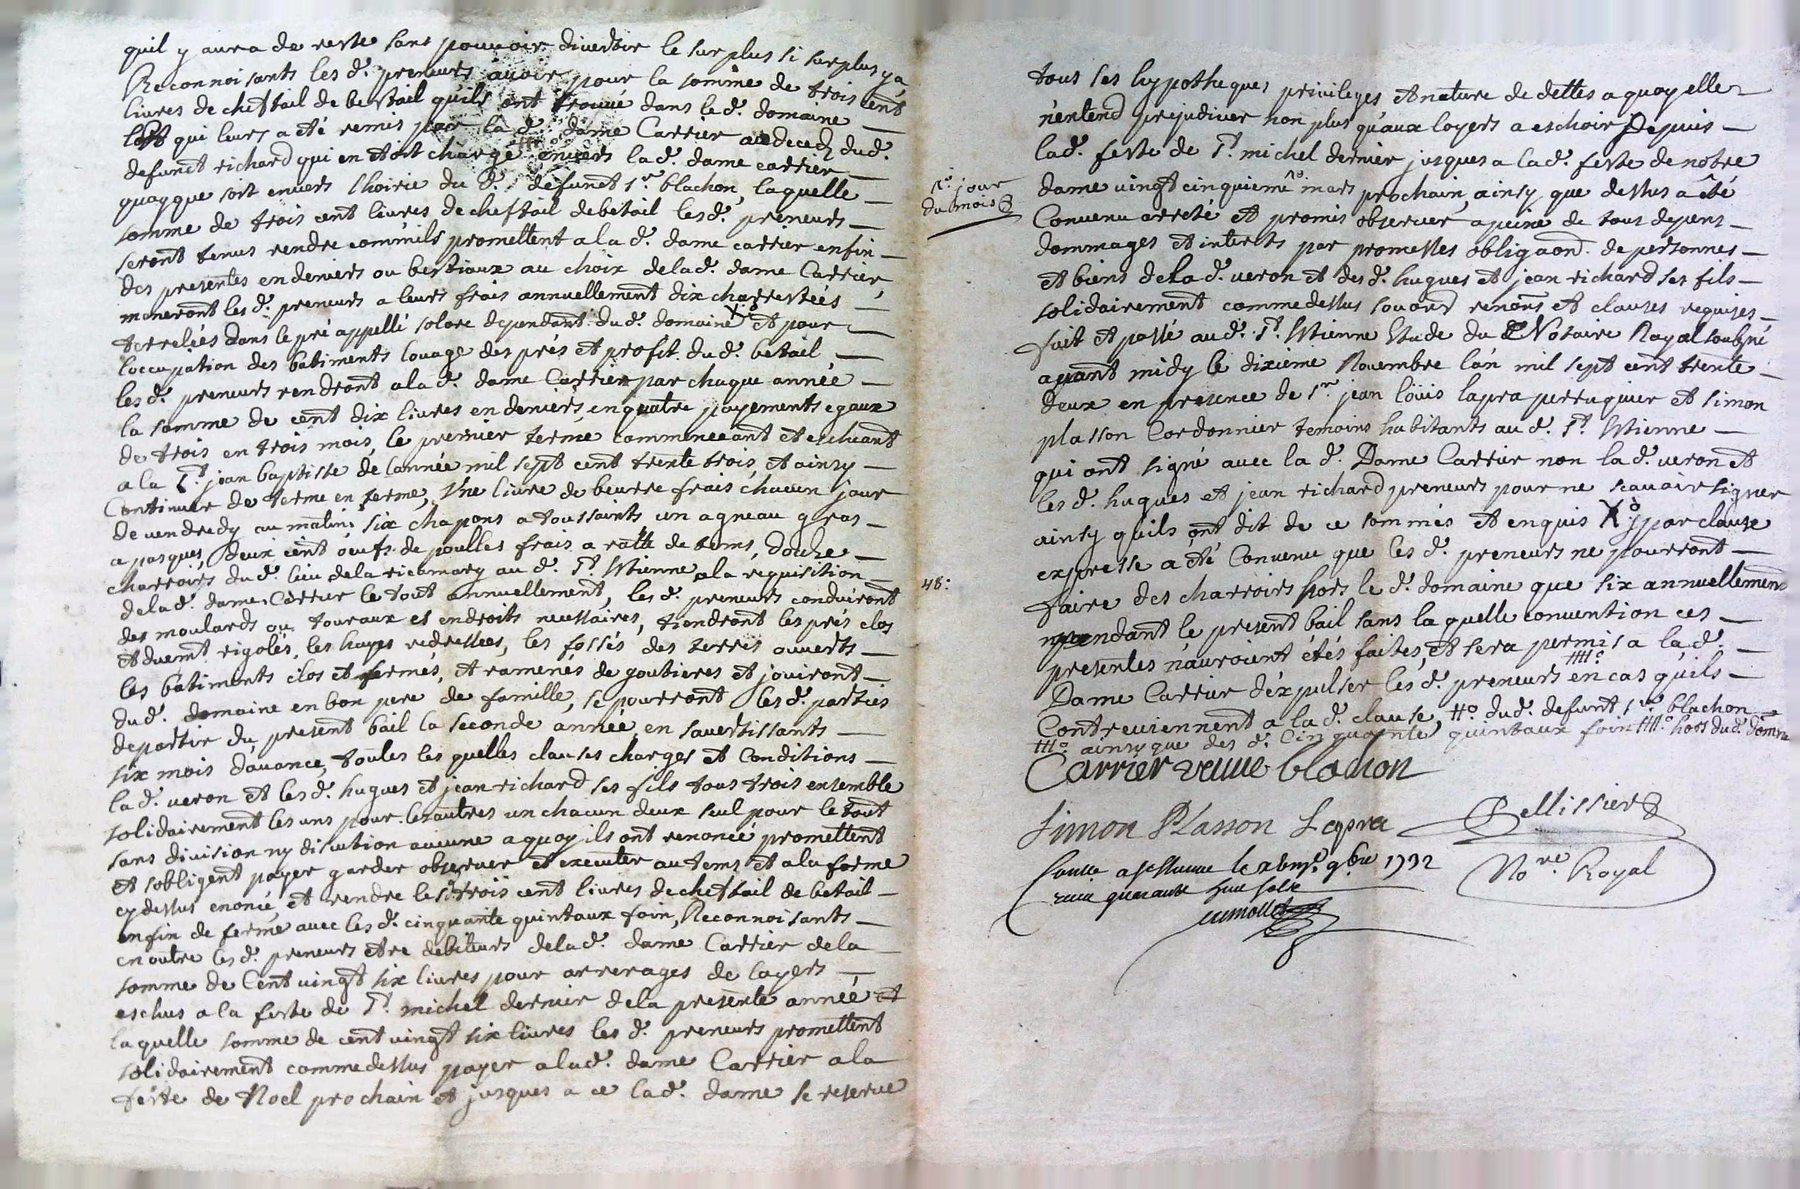 quil y aura de reste sans pouvoir divertir le surplus si surplus y a
Reconnoissants les d. preneurs avoir pour la somme de trois cent
livres de cheftail de bestail quils ont trouvé dans led. domaine
qui leurs a été remis par la d. dame Carrier au deced dud.
defunt richard qui en etoit chargé envers lad. dame carrier
quoyque soit envers lhoirie du d. defunt sr. blachon, laquelle
somme de trois cent livres de cheftail de bétail lesd. preneurs
seront tenus rendre comm'ils promettent a la d. dame carrier enfin
des presentes en deniers ou bestiaux au choix delad. dame Carrier,
meneront lesd. preneurs a leurs frais annuellement dix charrettées
terrelées dans le pré appellé solore dependant dud. domaine X et pour
loccupation des batiments louage des prés et profit dud. betail
lesd. preneurs rendront a la d. dame Carrier par chaque année
la somme de cent dix livres en deniers en quatre payements egaux
de trois en trois mois, le premier terme commenceant et escheant
a la St. jean baptiste de lannée mil sept cent trente trois, et ainsy
Continuer de terme en terme, Une livre de beurre frais chacun jour
de vendredy au matin, six chapons a toussaints un agneau gras
a pasques, Deux cent oeufs de poulles frais a ratte de tems, douze
charroirs du d. lieu de la ricamary au d. St. Etienne a la requisition
de la d. dame Carrier le tout annuellement, les d. preneurs conduiront
des moulards ou toureaux es endroits necessaires, tiendront les prés clos
et duemt. rigolés, les hayes redressees, les fossés des terres ouverts
les batiments clos et fermes, et ramenés de goutieres et jouiront
du d. domaine en bon pere de famille, se pourront les d. parties
departir du present bail la seconde année, en savertissants
six mois davance, toutes les quelles clauses charges et Conditions
la d. veron et les d. hugues et jean richard ses fils tous trois ensemble
solidairement les uns pour les autres un chacun deux seul pour le tout
sans division ny discution aucune a quoy ils ont renoncé promettent
et sobligent payer garder observer et executer au tems et a la forme
cy dessus enoncé et rendre les trois cent livres de cheftail de betail
enfin de ferme avec les d. cinquante quintaux foin, Reconnoissants
en outre les d. preneurs etre debiteurs de la d. dame Carrier de la
somme de Cent vingt six livres pour arrerages de loyers
eschus a la feste de St. michel dernier de la presente année et
laquelle somme de cent vingt six livres les d. preneurs promettent
solidairement comme dessus payer a la d. dame Carrier a la
feste de Noel prochain et jusques a ce la d. dame se reserve
tous ses hypotheques privileges et nature de dettes a quoy elle
n'entend prejudicier non plus qu'aux loyers a eschoir Depuis
la d. feste de St. michel dernier jusques a la d. feste de notre
dame vingt cinquieme mars prochain, ainsy que dessus a été
jour
du mois
Convenu arreté et promis observer a peine de tous depens
dommages et interets par promesses obligaõns de personnes
et biens de la d. veron et des d. hugues et jean richard ses fils
solidairement comme dessus renons et clauses requises
fait et passé au d. St. Etienne Etude du Notaire Royal soubsné
avant midy le dixieme Novembre lan mil sept cent trente
deux en presence de sr. jean loüis lapra perruquier et simon
plasson Cordonnier temoins habitants au d. St. Etienne
qui ont signé avec la d. Dame Carrier non la d. veron et
les d. hugues et jean richard preneurs pour ne scavoir signer
ainsy quils ont dit de ce sommés et enquis X par clause
expresse a été Convenu que les d. preneurs ne pourront
48:
faire des charroirs hors le d. domaine que six annuellement
pendant le present bail sans la quelle convention ces
presentes n'auroient étés faites, et sera permis a la d.
Dame Carrier d'éxpulser les d. preneurs en cas qu'ils
Contreviennent a la d. clause, dud. defunt sr. blachon
ainsy que des d. Cinquante quintaux foin hors du d. domne
Carrier veuve blachon
Simon Plasson Lapra
Pellissier
Nore. Royal
a st Etienne le 9bre 1732
quarante huit sols